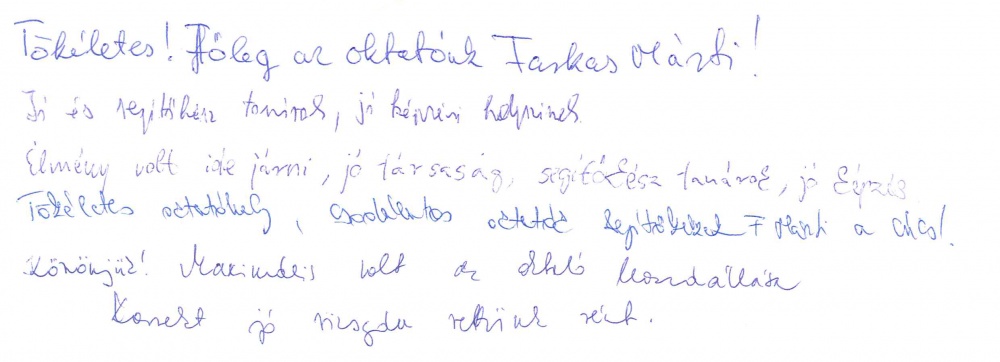 Tökéletes! Főleg az oktatónk Farkas Márti!
Jó és segítőkész tanárok, jó képzési helyszínek
Élmény volt ide járni, jó társaság, segítőkész tanárok, jó képzés
Tökéletes oktatóhely, csodálatos oktatók segítőkészek F Márti a
Könönjük! Maximális volt az oktató hozzáállása
Korrekt jó vizsgán vettünk részt.